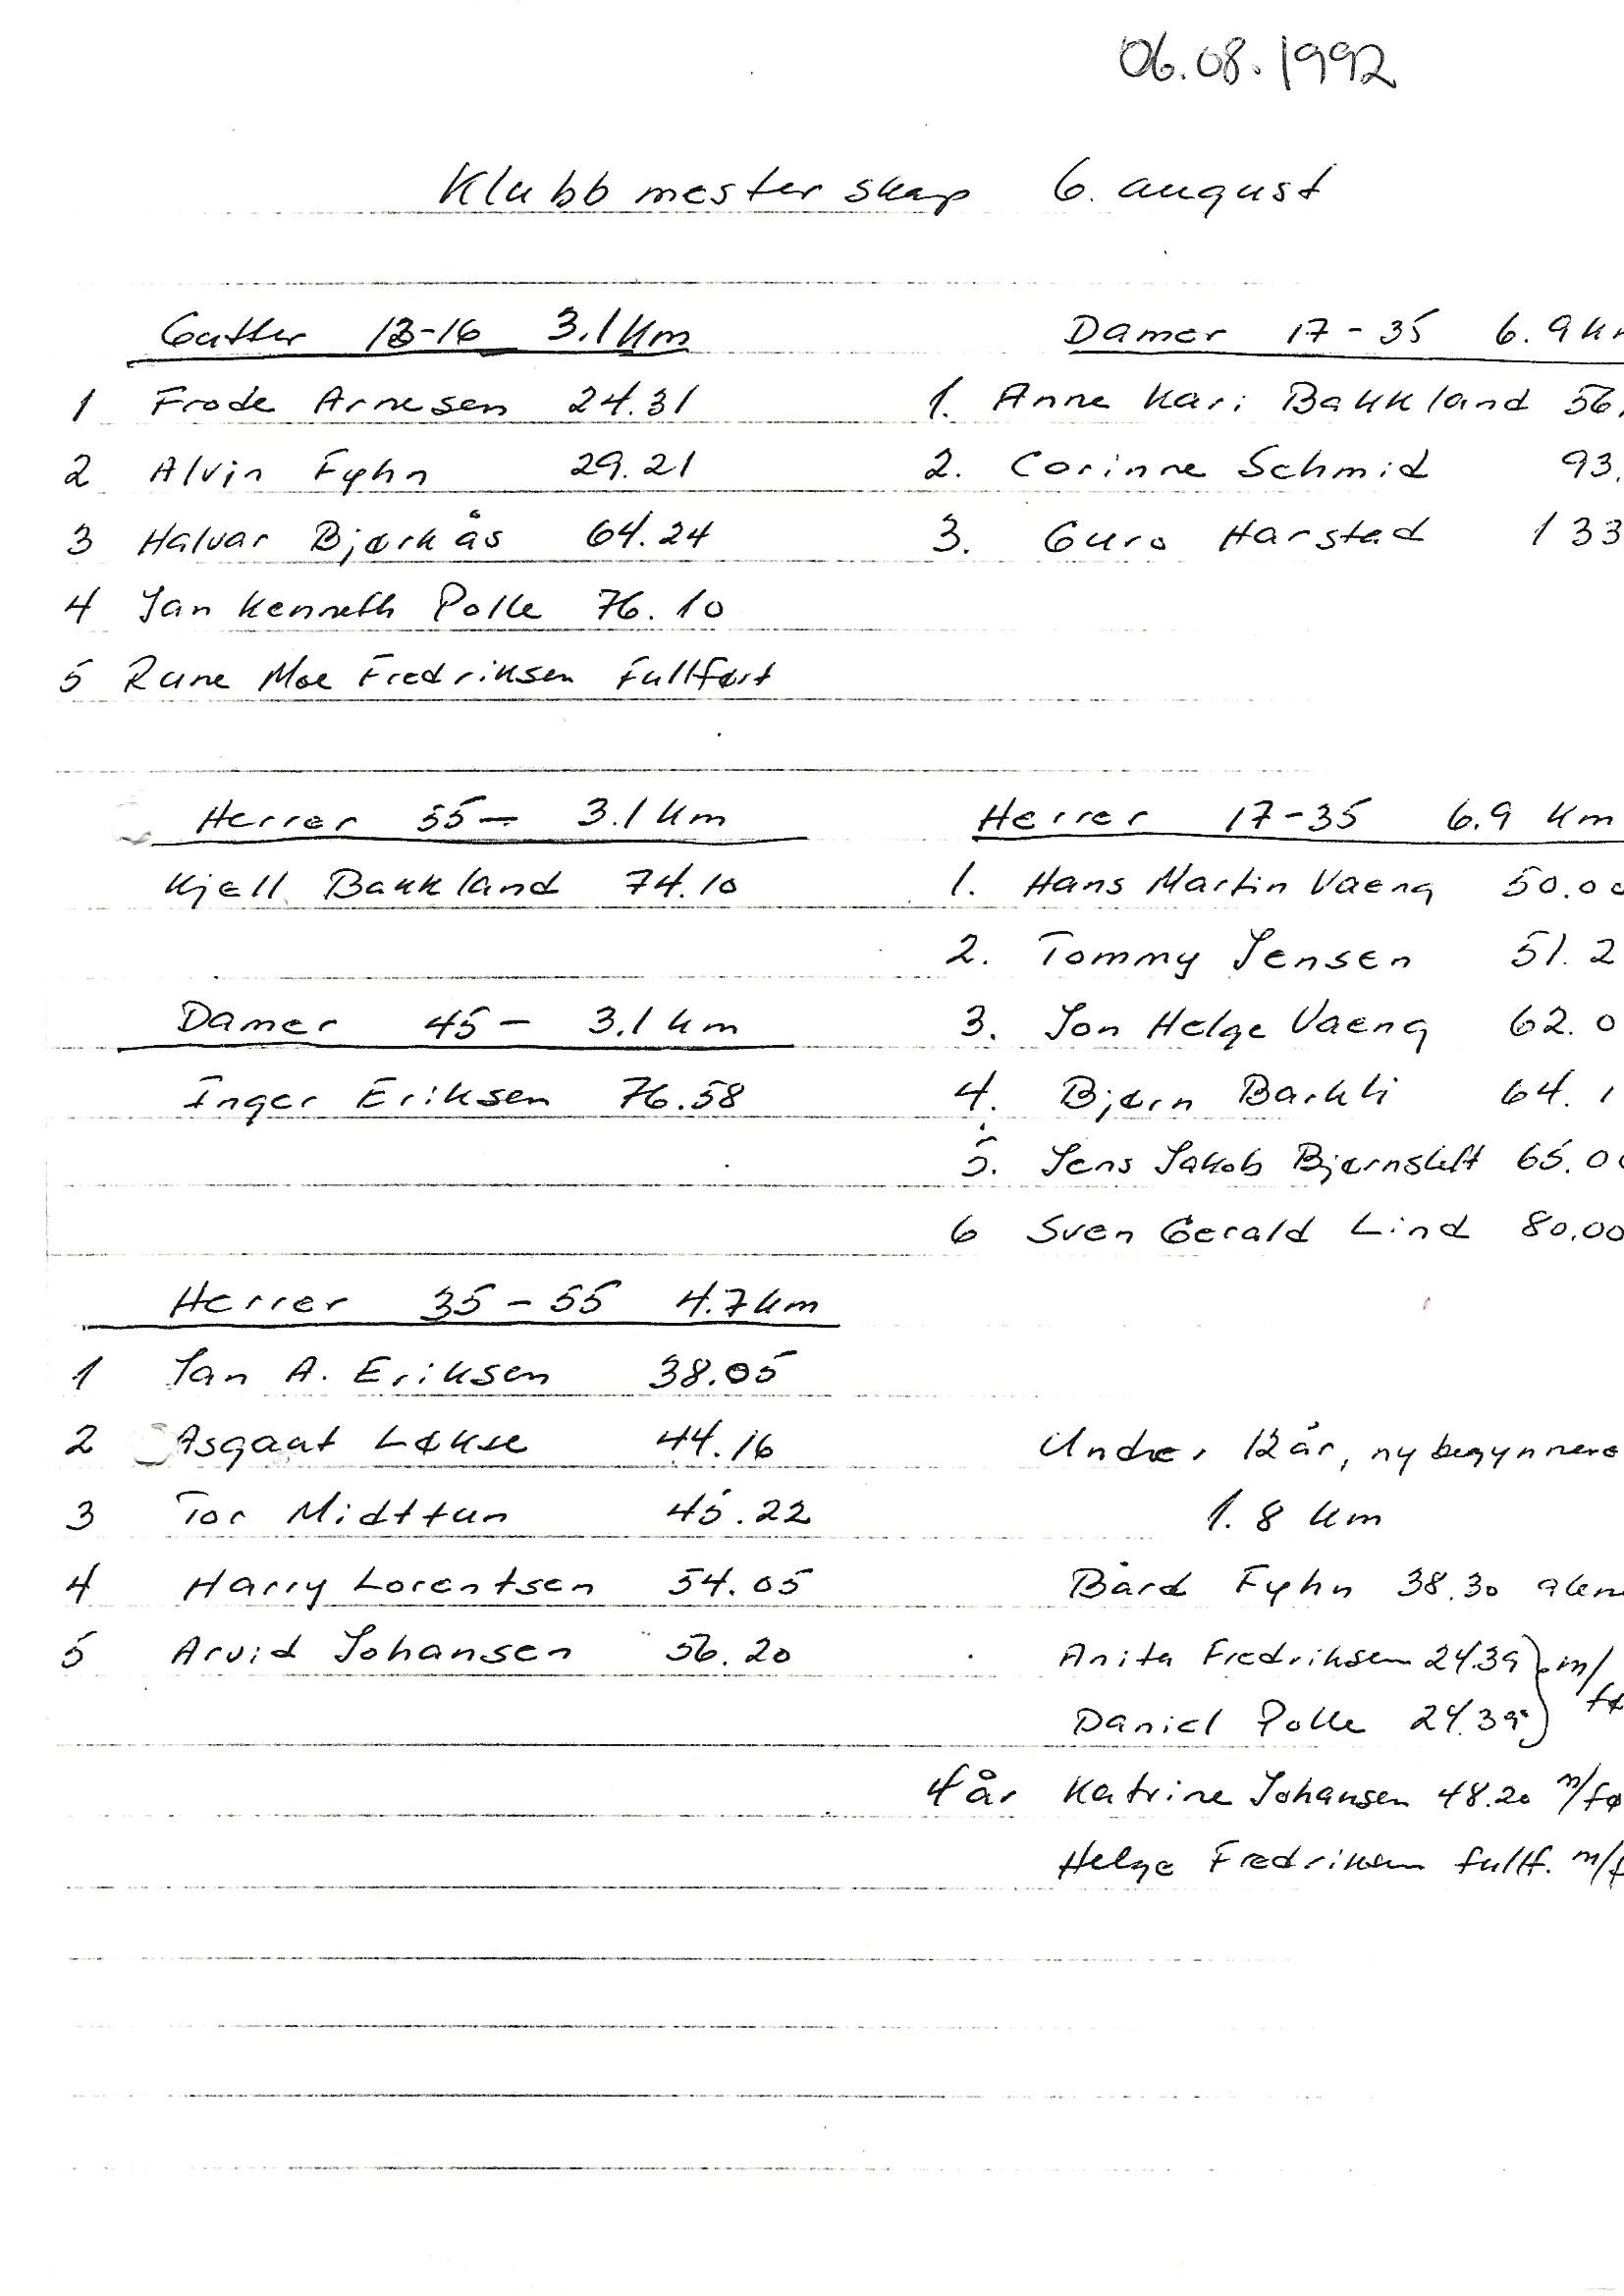 06.08.1992
Klubbmesterskap 6. august
Gutter 13-16 3.1 km
1 Frode Arnesen 24.31
2 Alvin Fyhn 29.21
3 Halvar Bjørkås 64.24
4 Jan Kenneth Polle 76.10
5 Rune Moe Fredriksen Fullført
Damer 17-35 6.9 k
1. Anne Kari Bakkland 56.
2. Corinne Schmid 93.
3. Guro Harstad 133
Herrer 55- 3.1 km
Kjell Bakkland 74.10
Damer 45- 3.1 km
Inger Eriksen 76.58
Herrer 17-35 6.9 km
1. Hans Martin Vaeng 50.00
2. Tommy Jensen 51.2
3. Jon Helge Vaeng 62.0
4. Bjørn Barkli 64.1
5. Jens Jakob Bjørnslett 65.00
6 Sven Gerald Lind 80.00
Herrer 35-55 4.7 km
1 Jan A. Eriksen 38.05
2 Asgaut Løkse 44.16
3 Tor Midttun 45.22
4 Harry Lorentsen 54.05
5 Arvid Johansen 56.20
Under 12 år, nybegynnere
1.8 km
Bård Fyhn 38.30 alen
Anita Fredriksen 24.39 } m/
Daniel Polle 24.39 } fø
4 år Katrine Johansen 48.20 m/fø
Helge Fredriksen fullf. m/f